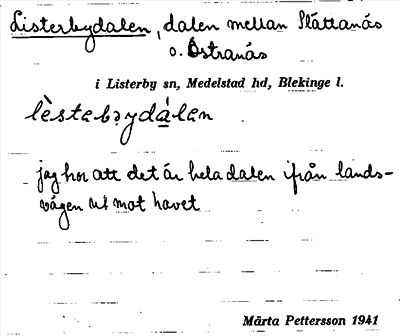 Listerbydalen, dalen mellan Slättanäs
o. Östranäs
i Listerby sn, Medelstad hd, Blekinge l.
lèstebəydá̱lan
jag hor att det är hela dalen ifrån lands-
vägen ut mot havet
Märta Pettersson 1941